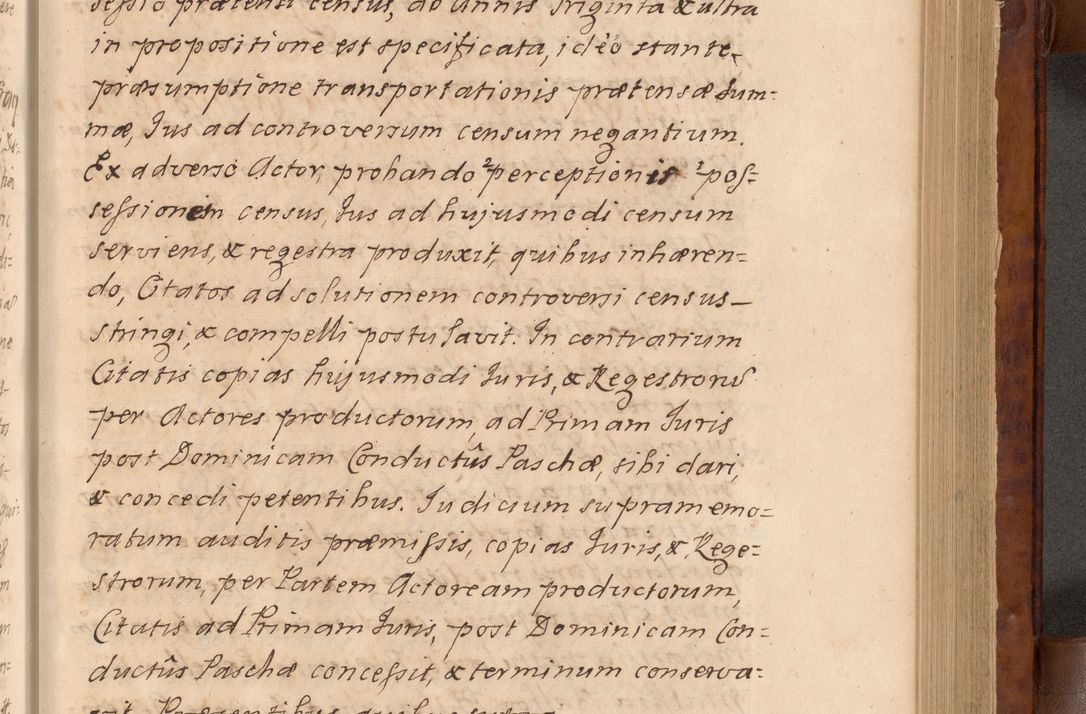 sessio prætensi census, ab Annis Triginta & ultra
in propositione est specificata, ideò stante
præsumptione transportationis prætensæ Sum=
mæ, Jus ad controversum censum negantium.
Ex adverso Actor, probando ²perceptionis ¹pos=
sessionem census, Jus ad hujusmodi censum
serviens, & regestra produxit, quibus inhæren=
do, Citatos ad solutionem controversi census
stringi, & compelli postulavit. In contrarium
Citatis copias hujusmodi Juris, & Regestrorũ
per Actores productorum, ad Primam Juris
post Dominicam Conductûs Paschæ, sibi dari,
& concedi petentibus. Judicium supramemo=
ratum auditis præmissis, copias Juris, & Rege=
strorum, per Partem Actoream productorum,
Citatis ad Primam Juris, post Dominicam Con=
ductûs Paschæ concessit, & terminum conserva=
vit. Præsentibus quibus supra